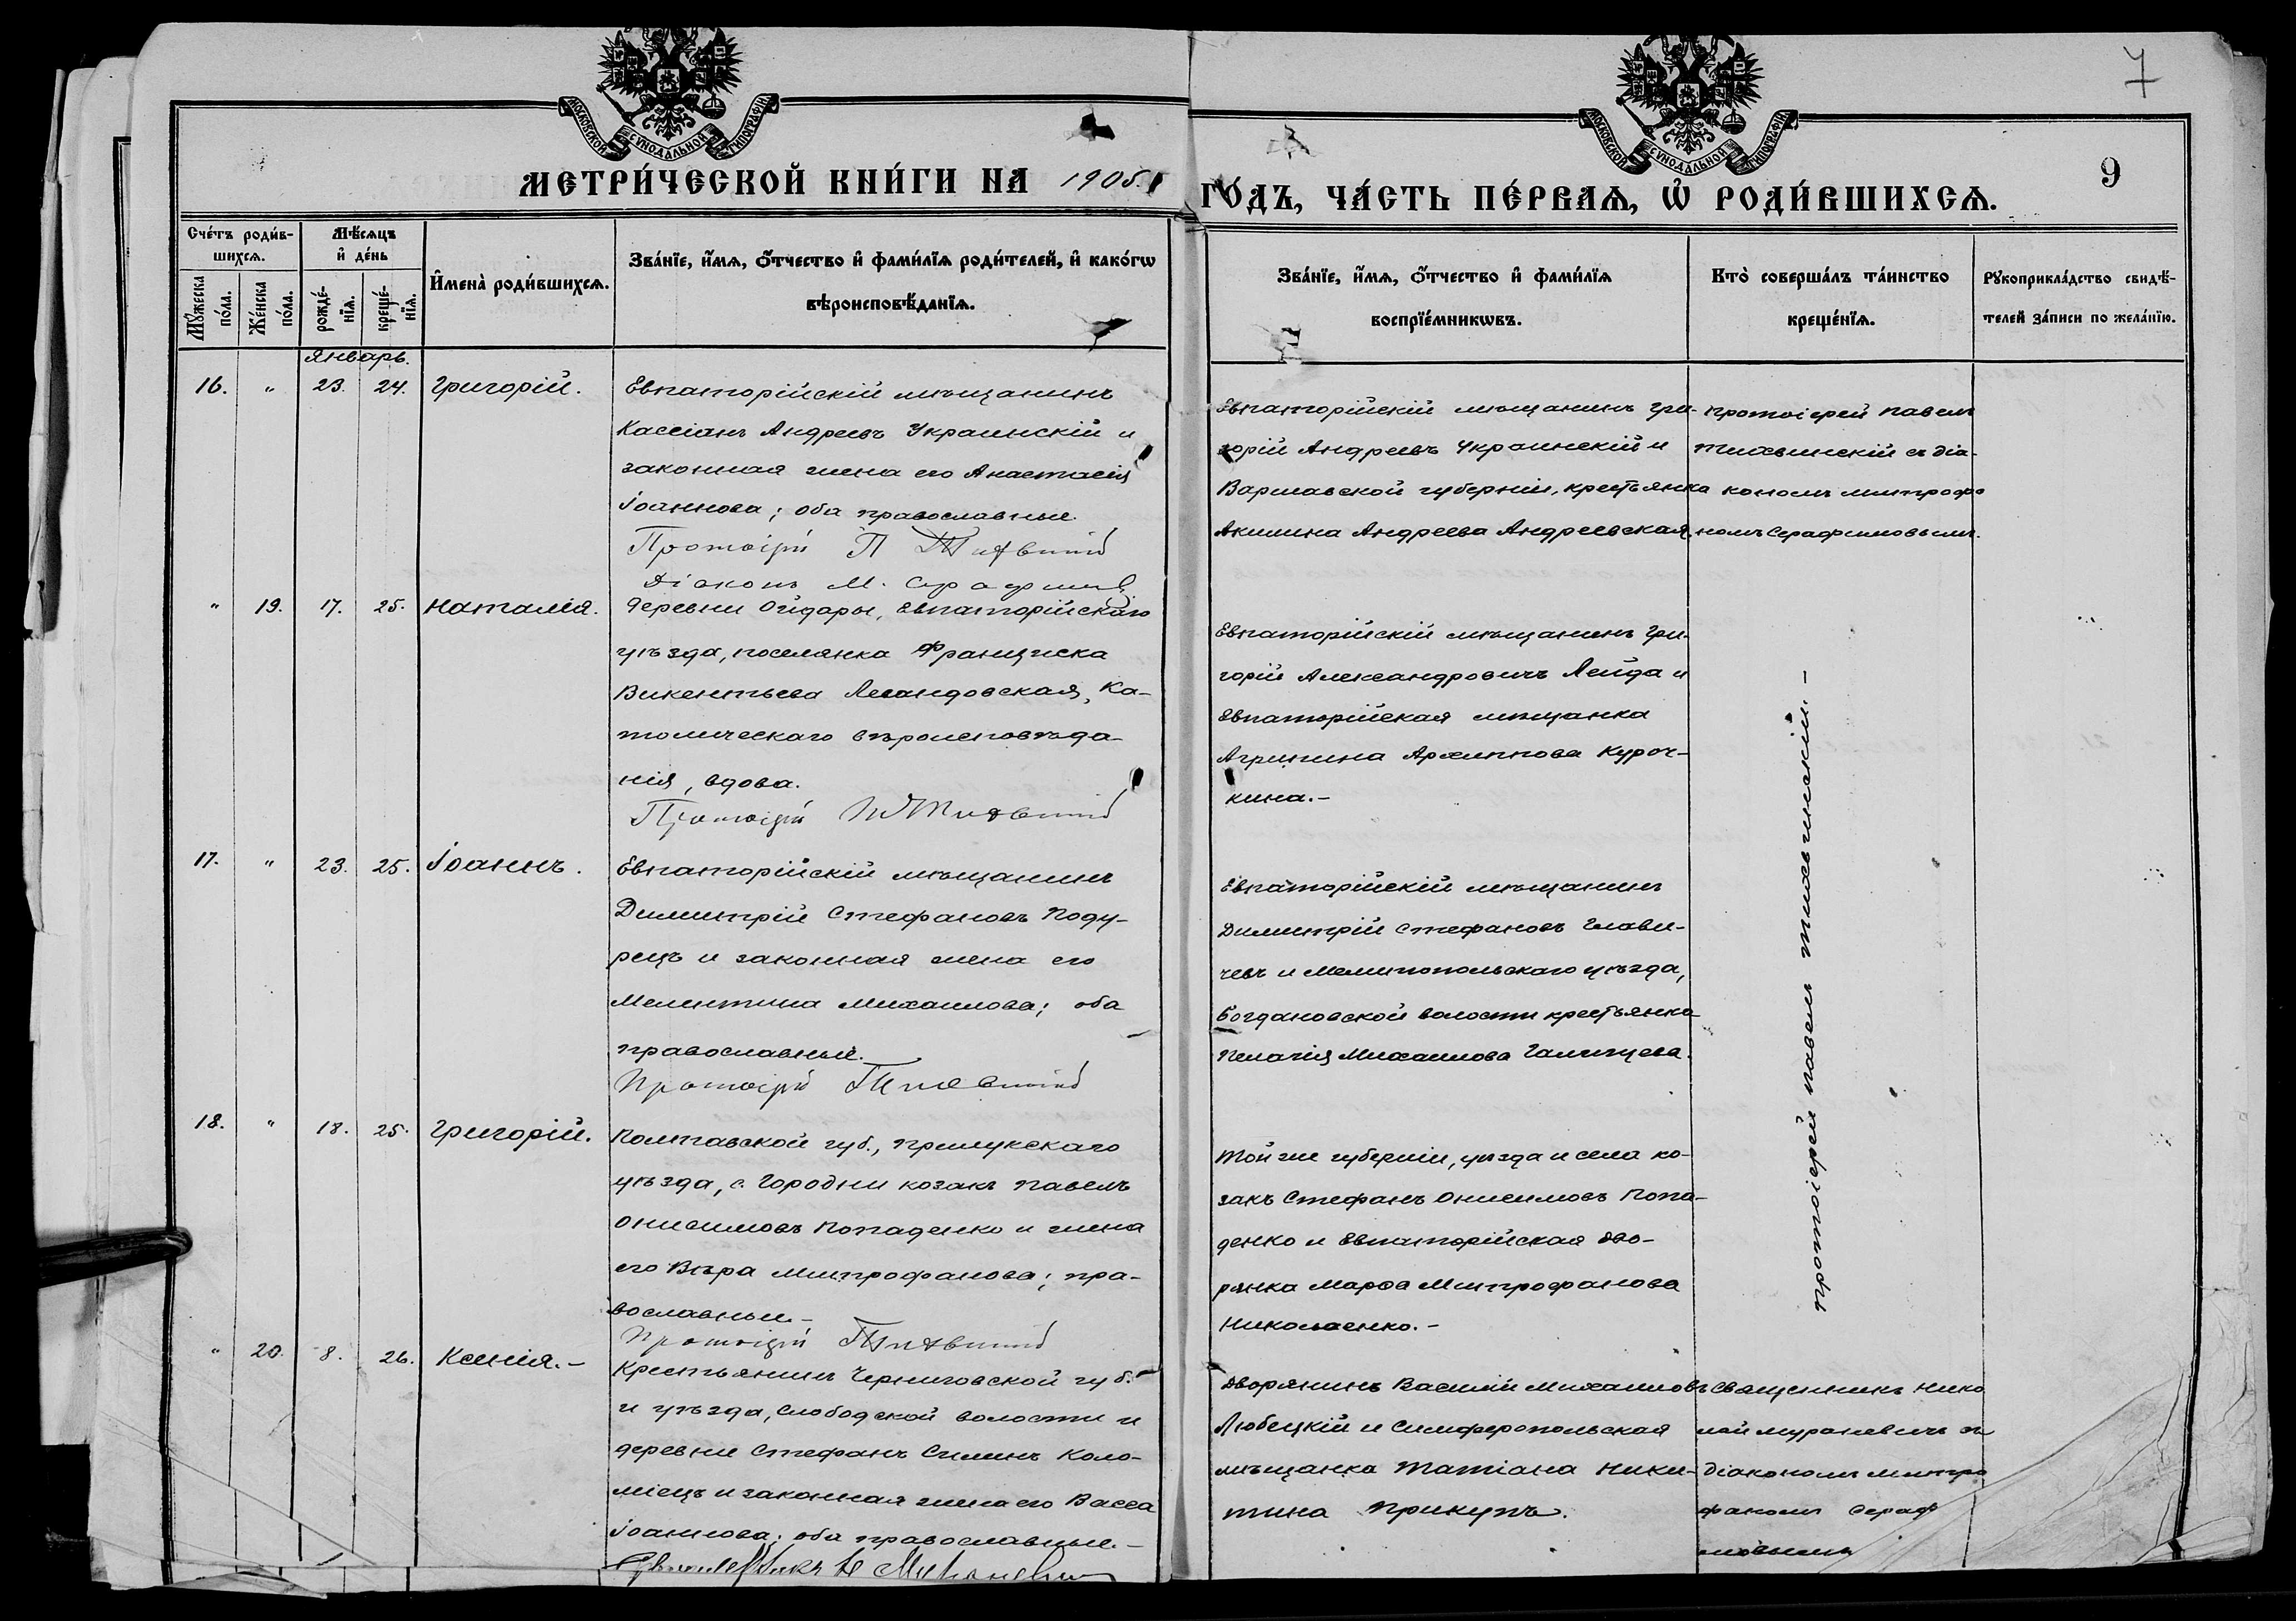 7
МОСКОВСКОЙ СѴНОДАЛЬНОЙ ТИПОГРАФІИ
МОСКОВСКОЙ СѴНОДАЛЬНОЙ ТИПОГРАФІИ
МЕТРИ́ЧЕСКОЙ КНИ́ГИ НА 1905.
ГО́ДЪ, ЧА́СТЬ ПЕ́РВАѦ, Ѽ РОДИ́ВШИХСѦ.
9
Сче́тъ роди́в-
шихсѧ.
Мꙋ́жеска
по́ла.
Же́нска
по́ла.
Мѣ́сѧцъ
и҆ де́нь
рожде́-
нїѧ.
креще́-
нїѧ.
И҆мена̀ роди́вшихсѧ.
Зва́нїе, и҆́мѧ, ѻ҆́тчество и҆ фами́лїѧ роди́телей, и҆ како́гѡ
вѣроисповѣ́данїѧ.
Зва́нїе, и҆́мѧ, ѻ҆́тчество и҆ фами́лїѧ
воспрїе́мникѡвъ.
Кто̀ соверша́лъ та́инство
креще́нїѧ.
Рꙋкоприкла́дство свидѣ́-
телей за́писи по жела́нїю.
Январь.
16. " 23. 24. Григорій.
Евпаторійскій мѣщанинъ
Кассіанъ Андреевъ Украинскій и
законная жена его Анастасія
Іоаннова; оба православные.
Протоіерей П Тихвинскій
Діаконъ М. Серафимов
Евпаторійскій мѣщанинъ Гри-
горій Андреевъ Украинскій и
Варшавской губерніи, крестьянка
Акилина Андреева Андреевская.
Протоіерей Павелъ
Тихвинскій съ діа-
кономъ Митрофа
номъ Серафимовымъ.
" 19. 17. 25. Наталія.
Деревни Ойдары, Евпаторійскаго
уѣзда, поселянка Франциска
Викентьева Левандовская, Ка-
толическаго вѣроисповѣда-
нія, вдова.
Протоіерей П Тихвинскій
Евпаторійскій мѣщанинъ Гри-
горій Александровичъ Лейда и
Евпаторійская мѣщанка
Агрипина Архиппова Куроч-
кина.-
Протоіерей Павелъ Тихвинскій.-
17. " 23. 25. Іоаннъ.
Евпаторійскій мѣщанинъ
Димитрій Стефановъ Поду-
рецъ и законная жена его
Мелитина Михаилова; оба
православные.
Протоіерей Тихвинскій
Евпаторійскій мѣщанинъ
Димитрій Стефановъ Глави-
чевъ и Мелитопольскаго уѣзда,
Богдановской волости крестьянка
Пелагія Михаилова Галицева.
18. " 18. 25. Григорій.
Полтавской губ., Прилукскаго
уѣзда, с. Городни козакъ Павелъ
Онисимовъ Попаденко и жена
его Вѣра Митрофанова; пра-
вославные.-
Протоіерей Тихвинскій
Той же губерніи, уѣзда и села ко-
закъ Стефанъ Онисимовъ Попа-
денко и Евпаторійская дво-
рянка Марѳа Митрофанова
Николаенко.-
" 20. 8. 26. Ксенія.-
Крестьянинъ Черниговской губ.
и уѣзда, Слободской волости и
деревни Стефанъ Симинъ Коло-
міецъ и законная жена его Васса
Іоаннова; оба православные.-
Священникъ Н Мураневич
Дворянинъ Василій Михаиловъ
Любецкій и Симферопольская
мѣщанка Татіана Ники-
тина Прикупъ.
Священникъ Нико
лай Мураневичъ съ
діакономъ Митро
фаномъ Сераф
имовымъ